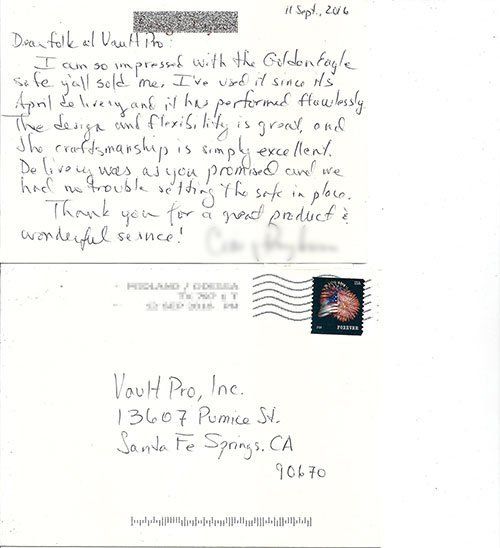 11 Sept., 2016
Dear folk at Vault Pro:
I am so impressed with the Golden Eagle
safe y'all sold me. I've used it since its
April delivery and it has performed flawlessly.
The design and flexibility is great, and
the craftsmanship is simply excellent.
Delivery was as you promised and we
had no trouble setting the safe in place.
Thank you for a great product &
wonderful service!
MIDLAND / ODESSA
TX 797 1 T
12 SEP 2016 PM
USA
FOREVER
Vault Pro, Inc.
13607 Pumice St.
Santa Fe Springs, CA
90670